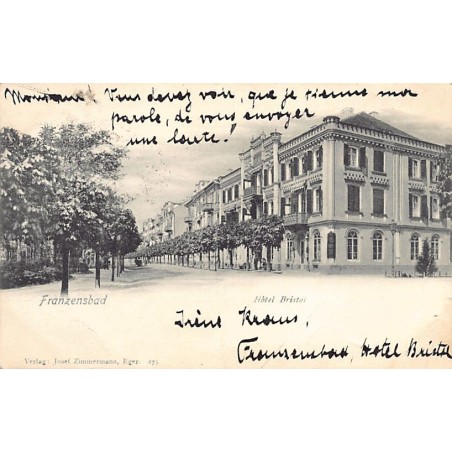 Monsieur! Vous devez voir, que je tienne mor
parole, de vous envoyer
une carte!
Franzensbad
Hôtel Bristol
Irène Kraus,
Franzensbad, Hotel Bristol
Verlag: Josef Zimmermann, Eger. 275